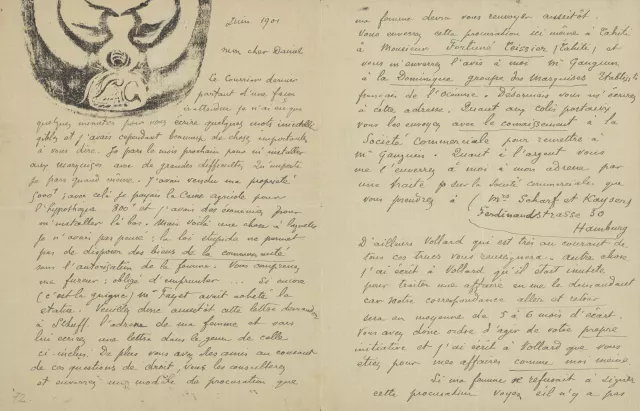 Juin 1901
Mon cher Daniel
Le Courrier dernier
partant d'une façon
inattendue je n'ai eu que
quelques minutes pour vous écrire quelques mots inintelli
gibles et j'avais cependant beaucoup de choses importantes
à vous dire. Je pars le mois prochain pour m'installer
aux marquises avec de grandes difficultés. N'importe
je pars quand même. J'avais vendu ma propriété
5000f; avec celà je payais la Caisse agricole pour
l'hypothèque 800f et j'avais des économies pour
m'installer là bas. Mais voilà une chose à laquelle
je n'avais pas pensé: la loi stupide ne permet
pas de disposer des biens de la communauté
sans l'autorisation de la femme. Vous comprenez
ma fureur: obligé d'emprunter ... Si encore
(c'est la guigne) Mr Fayet avait acheté la
statue. Veuillez donc aussitôt cette lettre demander
à Schuff. l'adresse de ma femme et vous
lui écrirez une lettre dans le genre de celle
ci-incluse. De plus vous avez des amis au courant
de ces questions de droit, vous les consulterez
et enverrez un modèle de procuration que
72
ma femme devra vous renvoyer aussitôt.
Vous enverrez cette procuration ici même à Tahiti
à Monsieur Fortuné Teissier (Tahiti) et
vous m'enverrez l'avis à moi Mr Gauguin
à la Dominique groupe des Marquises Etabliss.
français de l'Océanie. Désormais vous m'écrirez
à cette adresse. Quant aux colis postaux
vous les envoyez avec le connaissement à la
Société Commerciale pour remettre à
Mr Gauguin. Quant à l'argent vous
me l'enverrez à moi à mon adresse par
une traite sur la Société commerciale que
vous prendrez à (Mrs Scharf et Kayser
Ferdinandstrasse 30
Hamburg
D'ailleurs Vollard qui est très au courant de
tous ces trucs vous renseignera. Autre chose
j'ai écrit à Vollard qu'il était inutile
pour traiter une affaire en me le demandant
car notre correspondance aller et retour
sera en moyenne de 5 à 6 mois d'écart.
Vous avez donc ordre d'agir de votre propre
initiative et j'ai écrit à Vollard que vous
étiez pour mes affaires comme moi même
Si ma femme se refusait à signer
cette procuration voyez s'il n'y a pas